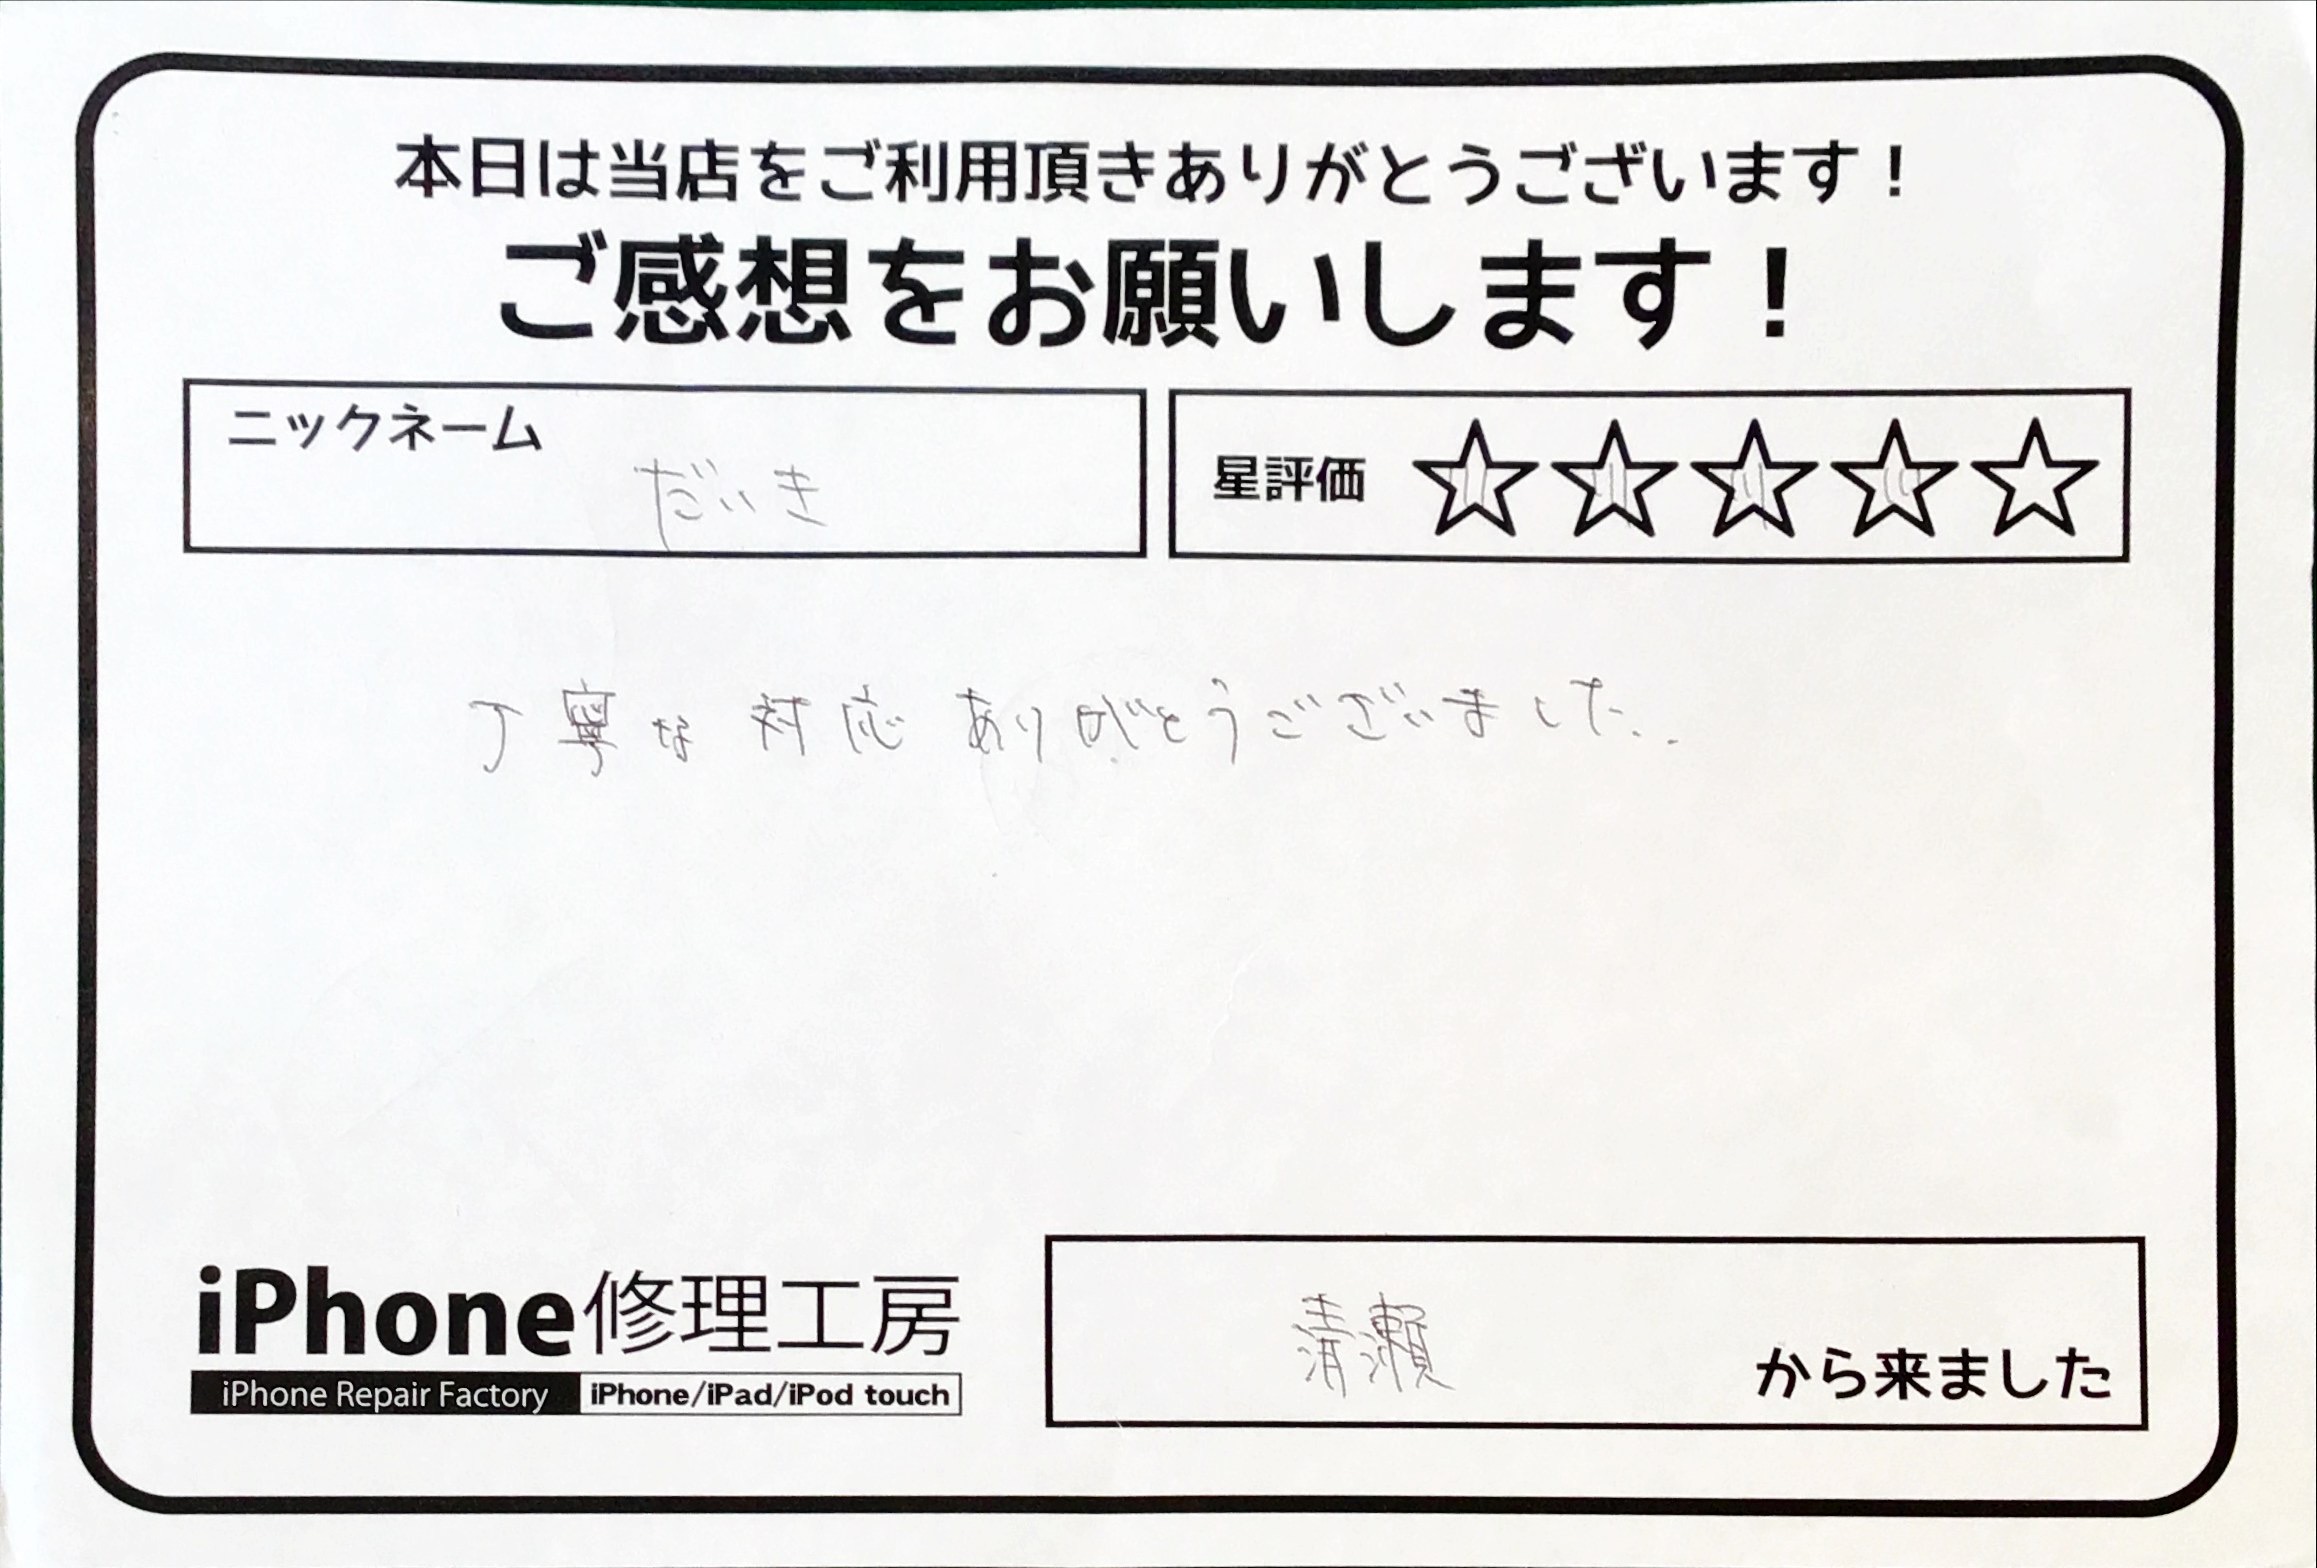 本日は当店をご利用頂きありがとうございます！
ご感想をお願いします！
ニックネーム
だいき
星評価 ☆☆☆☆☆
丁寧な対応ありがとうございました。
iPhone修理工房
iPhone Repair Factory iPhone/iPad/iPod touch
清瀬 から来ました